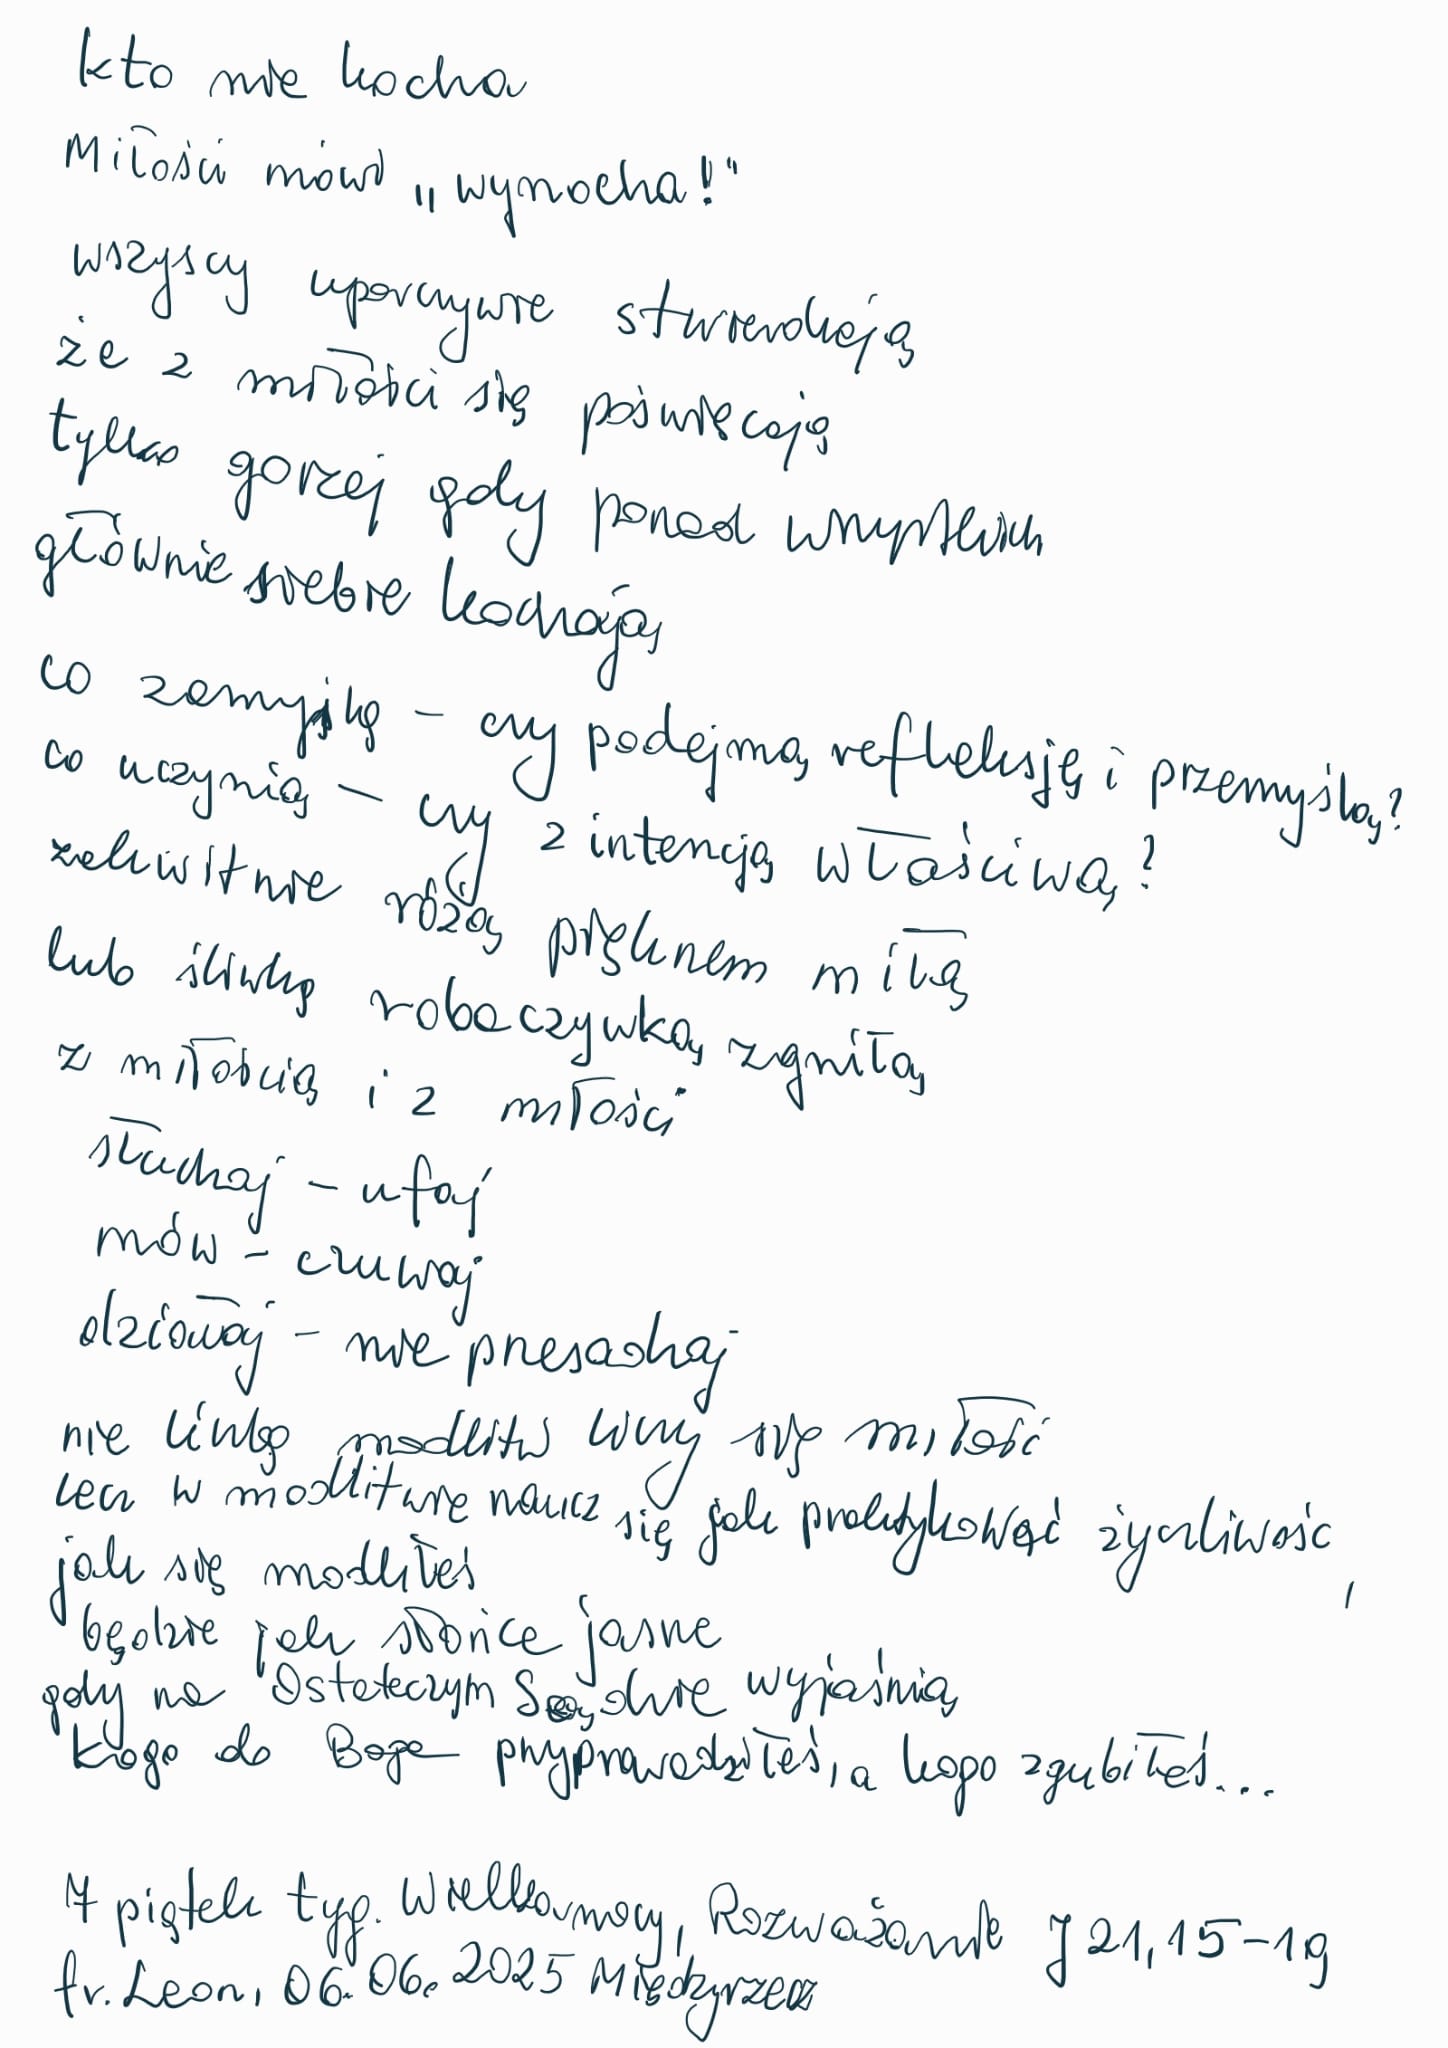 kto nie kocha
Miłości mówi „wynocha!"
wszyscy uporczywie stwierdzają
że z miłości się poświęcają
tylko gorzej gdy ponad wszystkich
głównie siebie kochają
co zamyślę – czy podejmą refleksję i przemyślą?
co uczynią – czy z intencją właściwą?
zakwitnie różą pięknem miłą
lub śliwką robaczywką zgniłą
z miłością i z miłości
słuchaj – ufaj
mów – czuwaj
działaj – nie przesadzaj
nie liczbę modlitw liczy się miłość
lecz w modlitwie naucz się jak praktykować życzliwość,
jak się modliłeś
będzie jak słońce jasne
gdy na Ostateczym Sądzie wyjaśnią
kogo do Boga przyprowadziłeś, a kogo zgubiłeś...
7 piątek tyg. Wielkanocy, Rozważanie J 21,15-19
fr. Leon, 06.06.2025 Międzyrzecz